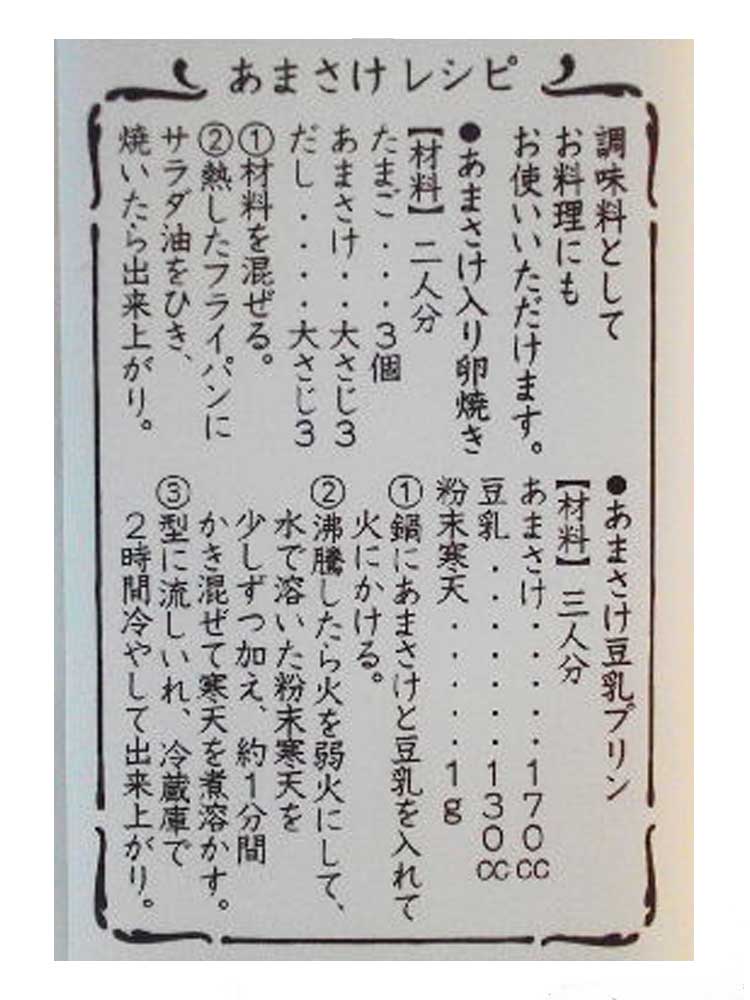 あまさけレシピ
調味料として
お料理にも
お使いいただけます。
●あまさけ入り卵焼き
【材料】二人分
たまご・・・3個
あまさけ・・大さじ3
だし・・・・大さじ3
①材料を混ぜる。
②熱したフライパンに
サラダ油をひき、
焼いたら出来上がり。
●あまさけ豆乳プリン
【材料】三人分
あまさけ・・・・・170cc
豆乳・・・・・・・130cc
粉末寒天・・・・・1g
①鍋にあまさけと豆乳を入れて
火にかける。
②沸騰したら火を弱火にして、
水で溶いた粉末寒天を
少しずつ加え、約1分間
かき混ぜて寒天を煮溶かす。
③型に流しいれ、冷蔵庫で
2時間冷やして出来上がり。